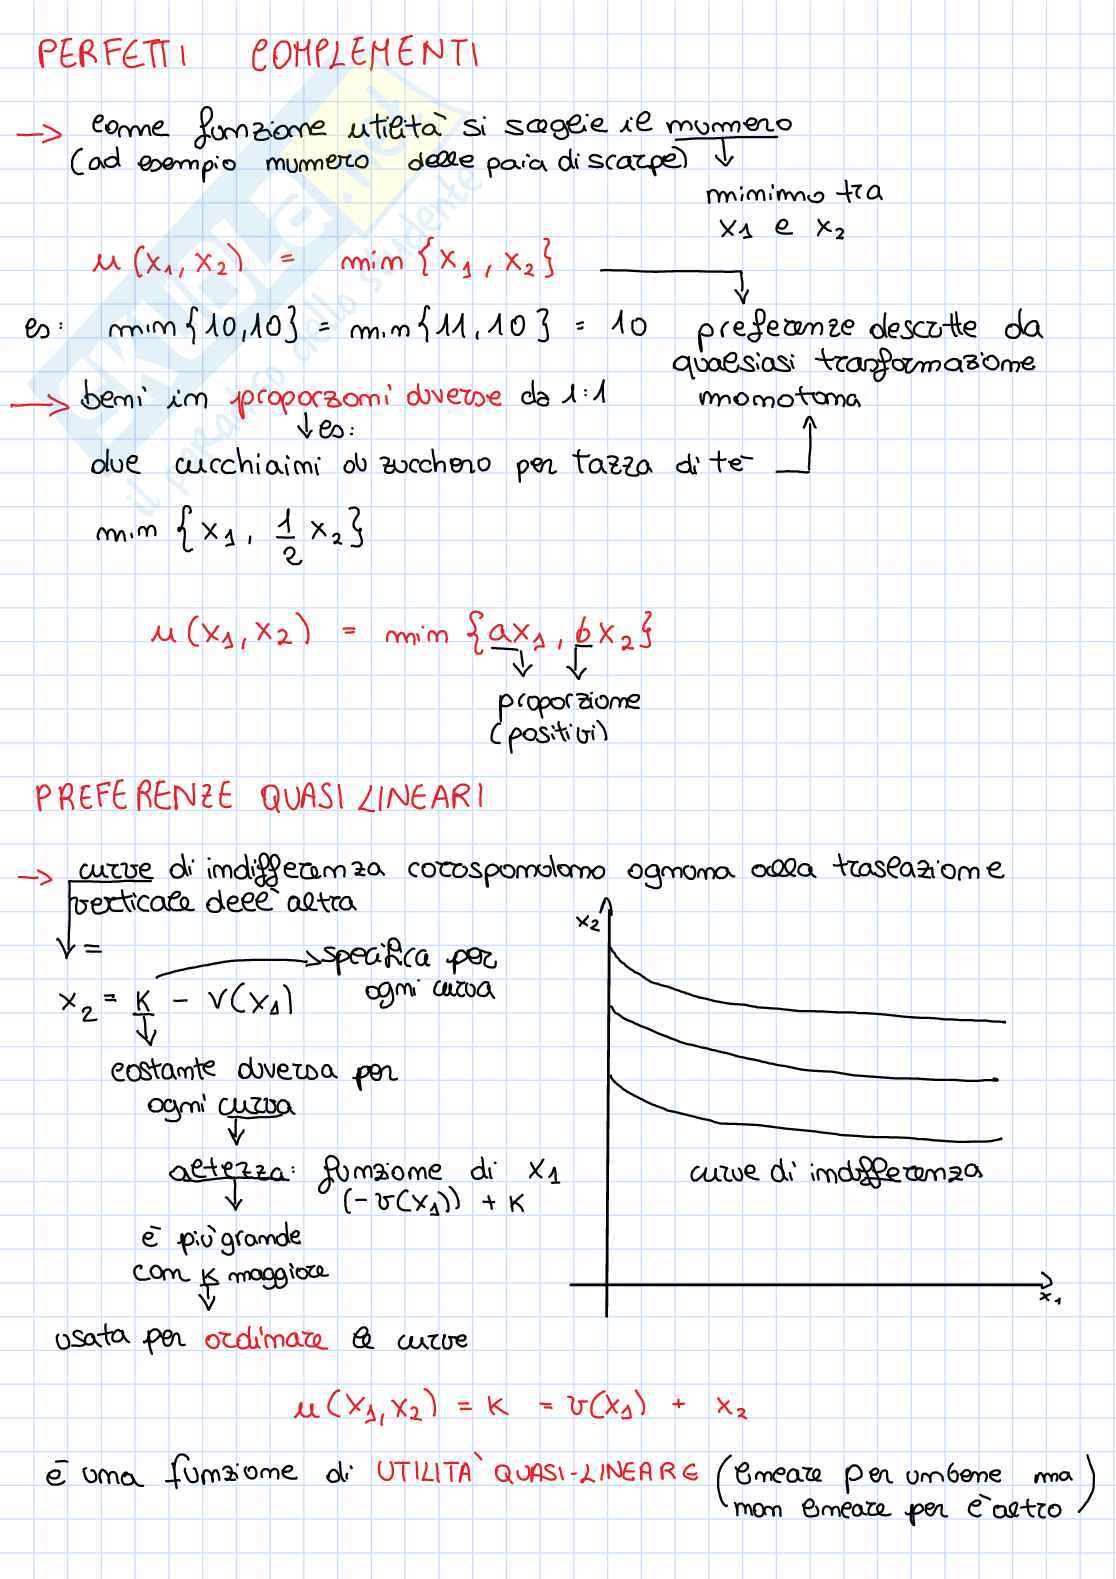 PERFETTI COMPLEMENTI
→ come funzione utilità si sceglie il numero
(ad esempio numero delle paia di scarpe)
↓
minimo tra
x1 e x2
u(x1, x2) = min {x1, x2}
es: min{10,10} = min{11,10} = 10
preferenze descritte da
qualsiasi trasformazione
monotona
→ beni in proporzioni diverse da 1:1
↓ es:
due cucchiaini di zucchero per tazza di tè
min {x1, 1/2 x2}
u(x1, x2) = min {ax1, bx2}
proporzione
(positivi)
PREFERENZE QUASI LINEARI
→ curve di indifferenza corrispondono ognuna alla traslazione
verticale dell'altra
↓ =
x2 = K - v(x1)
→ specifica per
ogni curva
costante diversa per
ogni curva
↓
altezza: funzione di x1
(-v(x1)) + K
↓
è più grande
con K maggiore
↓
usata per ordinare le curve
x2
curve di indifferenza
x1
u(x1, x2) = K = v(x1) + x2
è una funzione di UTILITÀ QUASI-LINEARE (lineare per un bene ma
non lineare per l'altro)
SKUOLA.net
il paradiso dello studente